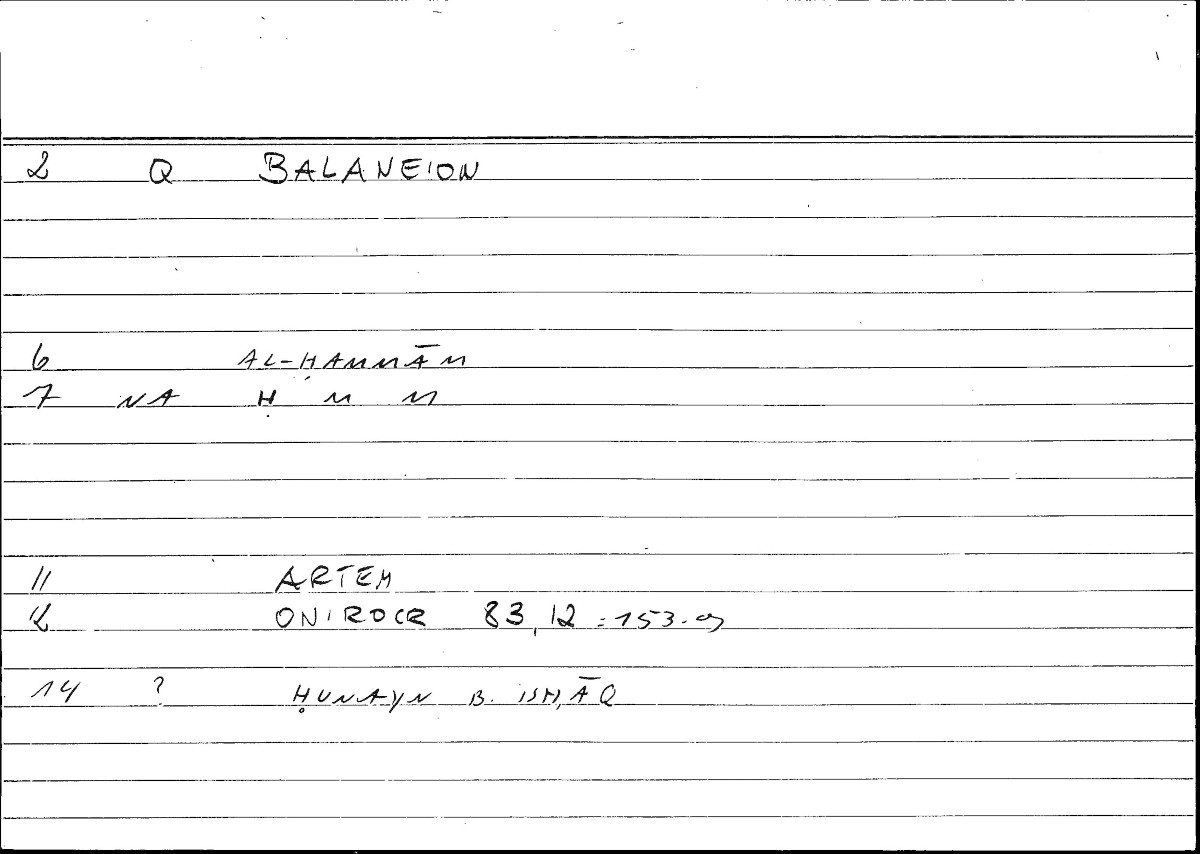 2 Q BALANEION
6 AL-ḤAMMĀM
7 NA Ḥ M M
11 ARTEM
12 ONIROCR 83,12 = 153.9
14 ? ḤUNAYN B. ISḤĀQ